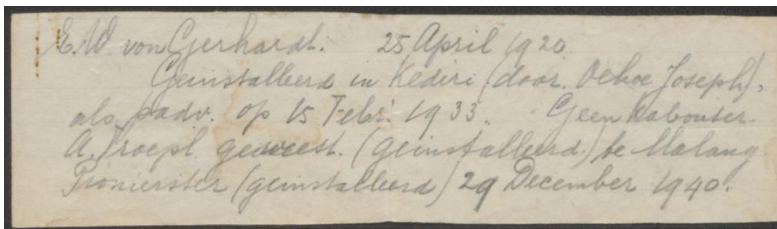 E.W. von Gerhardt. 25 April 1920
Geïnstalleerd in Kediri (door. Oehoe Joseph).
als padv. op 15 Febr. 1933. Geen Kabouter.
A. Troepl geweest. (geïnstalleerd.) te Malang
Pionierster (geïnstalleerd) 29 December 1940.